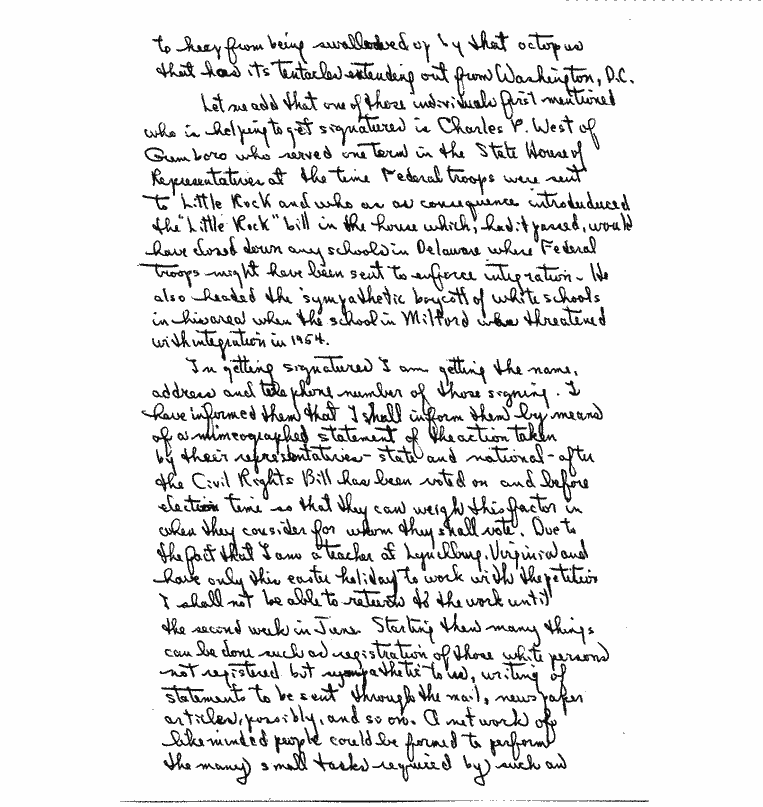 to keep from being swallowed up by that octopus
that has its tentacles extending out from Washington, D.C.
Let me add that one of those individuals first mentioned
who is helping to get signatures is Charles P. West of
Gumboro who served one term in the State House of
Representatives at the time Federal troops were sent
to Little Rock and who as as consequence introduduced
the "Little Rock" bill in the house which, had it passed, would
have closed down any schools in Delaware where Federal
troops might have been sent to enforce integration. He
also headed the sympathetic boycott of white schools
in his area when the school in Milford was threatened
with integration in 1954.
In getting signatures I am getting the name,
address and telephone number of those signing. I
have informed them that I shall inform them by means
of a mimeographed statement of the action taken
by their representatives - state and national - after
the Civil Rights Bill has been voted on and before
election time so that they can weigh this factor in
when they consider for whom they shall vote. Due to
the fact that I am a teacher at Lynchburg, Virginia and
have only this easter holiday to work with the petition
I shall not be able to return to the work until
the second week in June. Starting then many things
can be done such as registration of those white persons
not registered but sympathetic to us, writing of
statements to be sent through the mail, newspaper
articles, possibly, and so on. A network of
like minded people could be formed to perform
the many small tasks required by such an